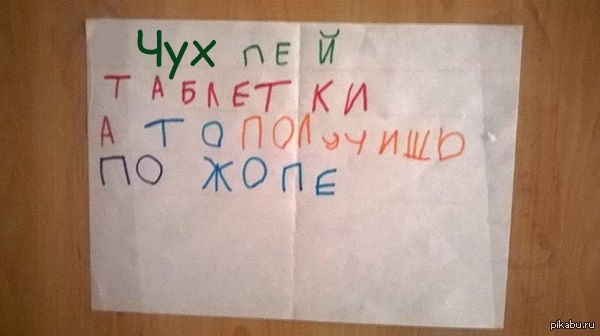 Чух ПЕЙ
ТАБЛЕТКИ
А ТО ПОЛУЧИШЬ
ПО ЖОПЕ
pikabu.ru